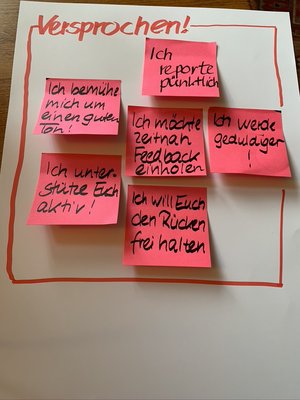 Versprochen!
Ich
reporte
pünktlich
Ich bemühe
mich um
einen guten
Ton!
Ich möchte
zeitnah
Feedback
einholen
Ich werde
geduldiger
!
Ich unter-
stütze Euch
aktiv!
Ich will Euch
den Rücken
frei halten